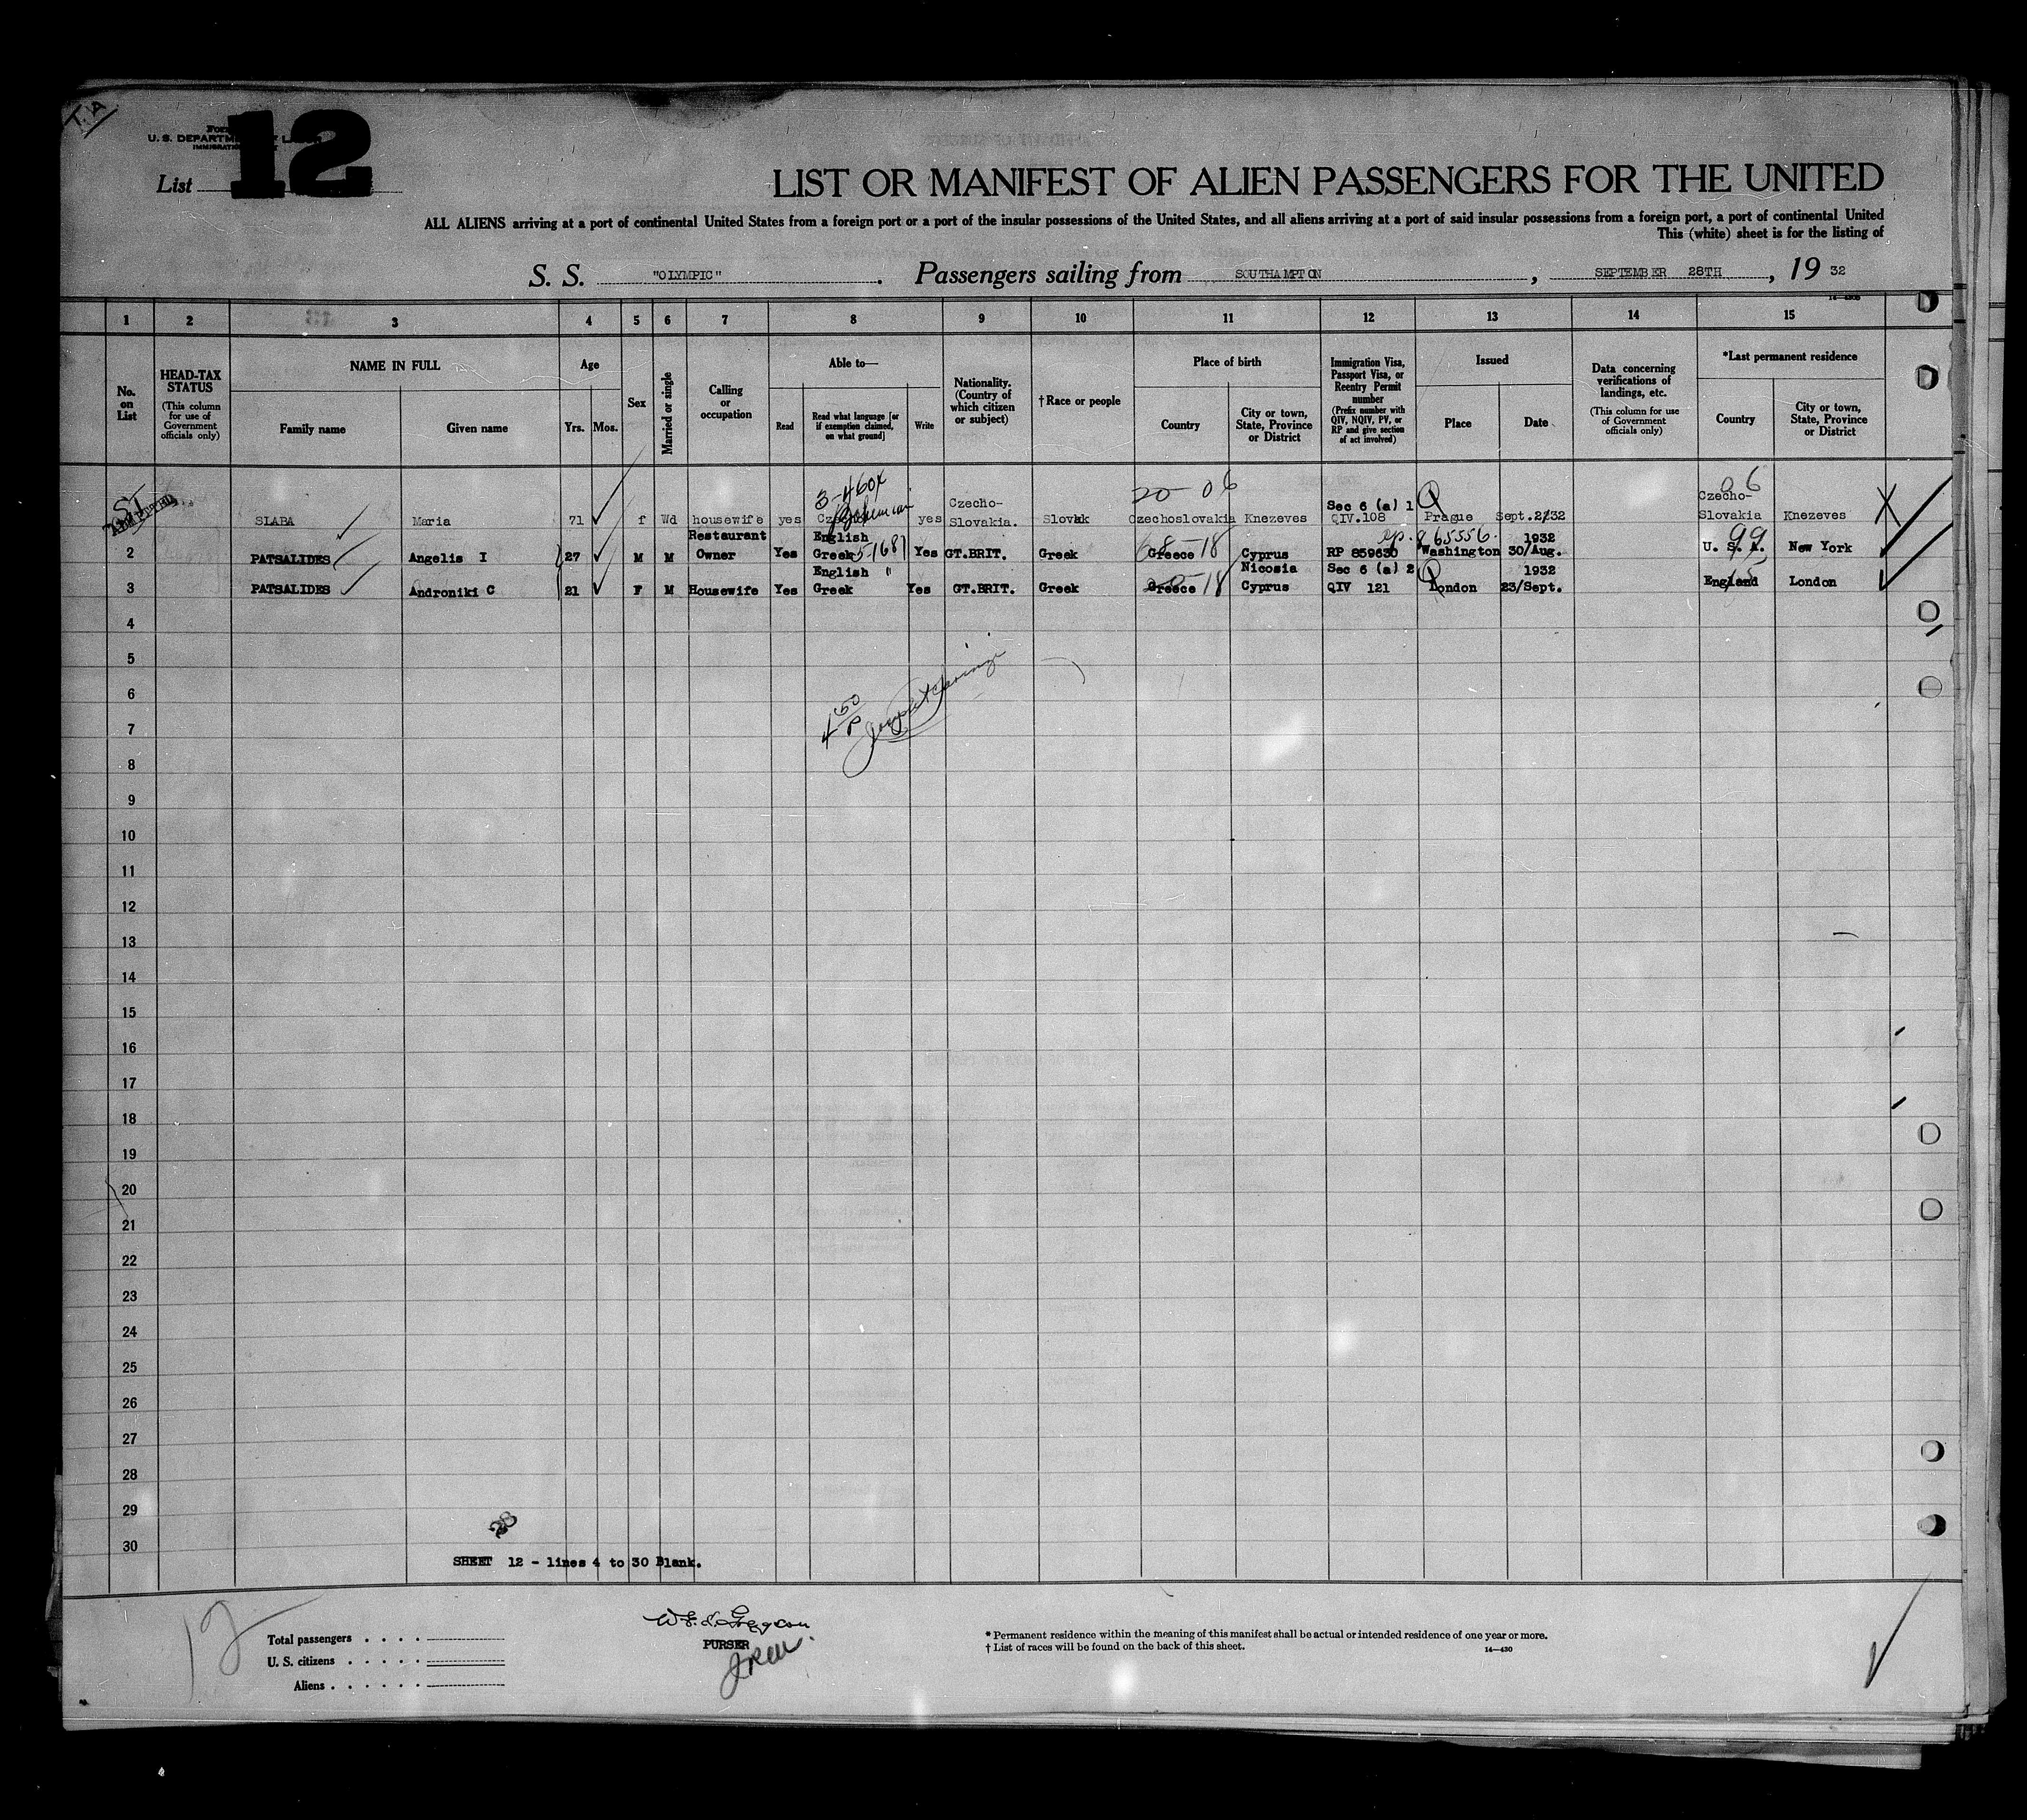 T.A
Form
U. S. DEPARTMENT OF LABOR
IMMIGRATION
List 12
LIST OR MANIFEST OF ALIEN PASSENGERS FOR THE UNITED
ALL ALIENS arriving at a port of continental United States from a foreign port or a port of the insular possessions of the United States, and all aliens arriving at a port of said insular possessions from a foreign port, a port of continental United
This (white) sheet is for the listing of
S. S. "OLYMPIC". Passengers sailing from SOUTHAMPTON, SEPTEMBER 28TH, 19 32
1 2 3 4 5 6 7 8 9 10 11 12 13 14 15
No. on List
HEAD-TAX STATUS
(This column for use of Government officials only)
NAME IN FULL
Family name Given name
Age
Yrs. Mos.
Sex
Married or single
Calling or occupation
Able to—
Read
Read what language [or if exemption claimed, on what ground]
Write
Nationality. (Country of which citizen or subject)
†Race or people
Place of birth
Country
City or town, State, Province or District
Immigration Visa, Passport Visa, or Reentry Permit number
(Prefix number with QIV, NQIV, PV, or RP and give section of act involved)
Issued
Place Date
Data concerning verifications of landings, etc.
(This column for use of Government officials only)
*Last permanent residence
Country
City or town, State, Province or District
3-460X 20-06 06
Czecho- Sec 6 (a) 1 Czecho-
SLABA Maria 71 f Wd housewife yes Bohemian yes Slovakia. Slovak Czechoslovakia Knezeves QIV.108 Prague Sept.2/32 Slovakia Knezeves
Restaurant English 865556 1932 99
2 PATSALIDES Angelis I 27 M M Owner Yes Greek 5-1681 Yes GT.BRIT. Greek Greece 18 Cyprus RP 859630 Washington 30/Aug. U. S. A. New York
English " Nicosia Sec 6 (a) 2 1932
3 PATSALIDES Androniki C 21 F M Housewife Yes Greek Yes GT.BRIT. Greek Greece 18 Cyprus QIV 121 London 23/Sept. England London
4
5
6
7
8
9
10
11
12
13
14
15
16
17
18
19
20
21
22
23
24
25
26
27
28
29
30
28
SHEET 12 - lines 4 to 30 Blank.
12
Total passengers . . . .
U. S. citizens . . . . .
Aliens . . . . . .
PURSER
* Permanent residence within the meaning of this manifest shall be actual or intended residence of one year or more.
† List of races will be found on the back of this sheet.
14—430